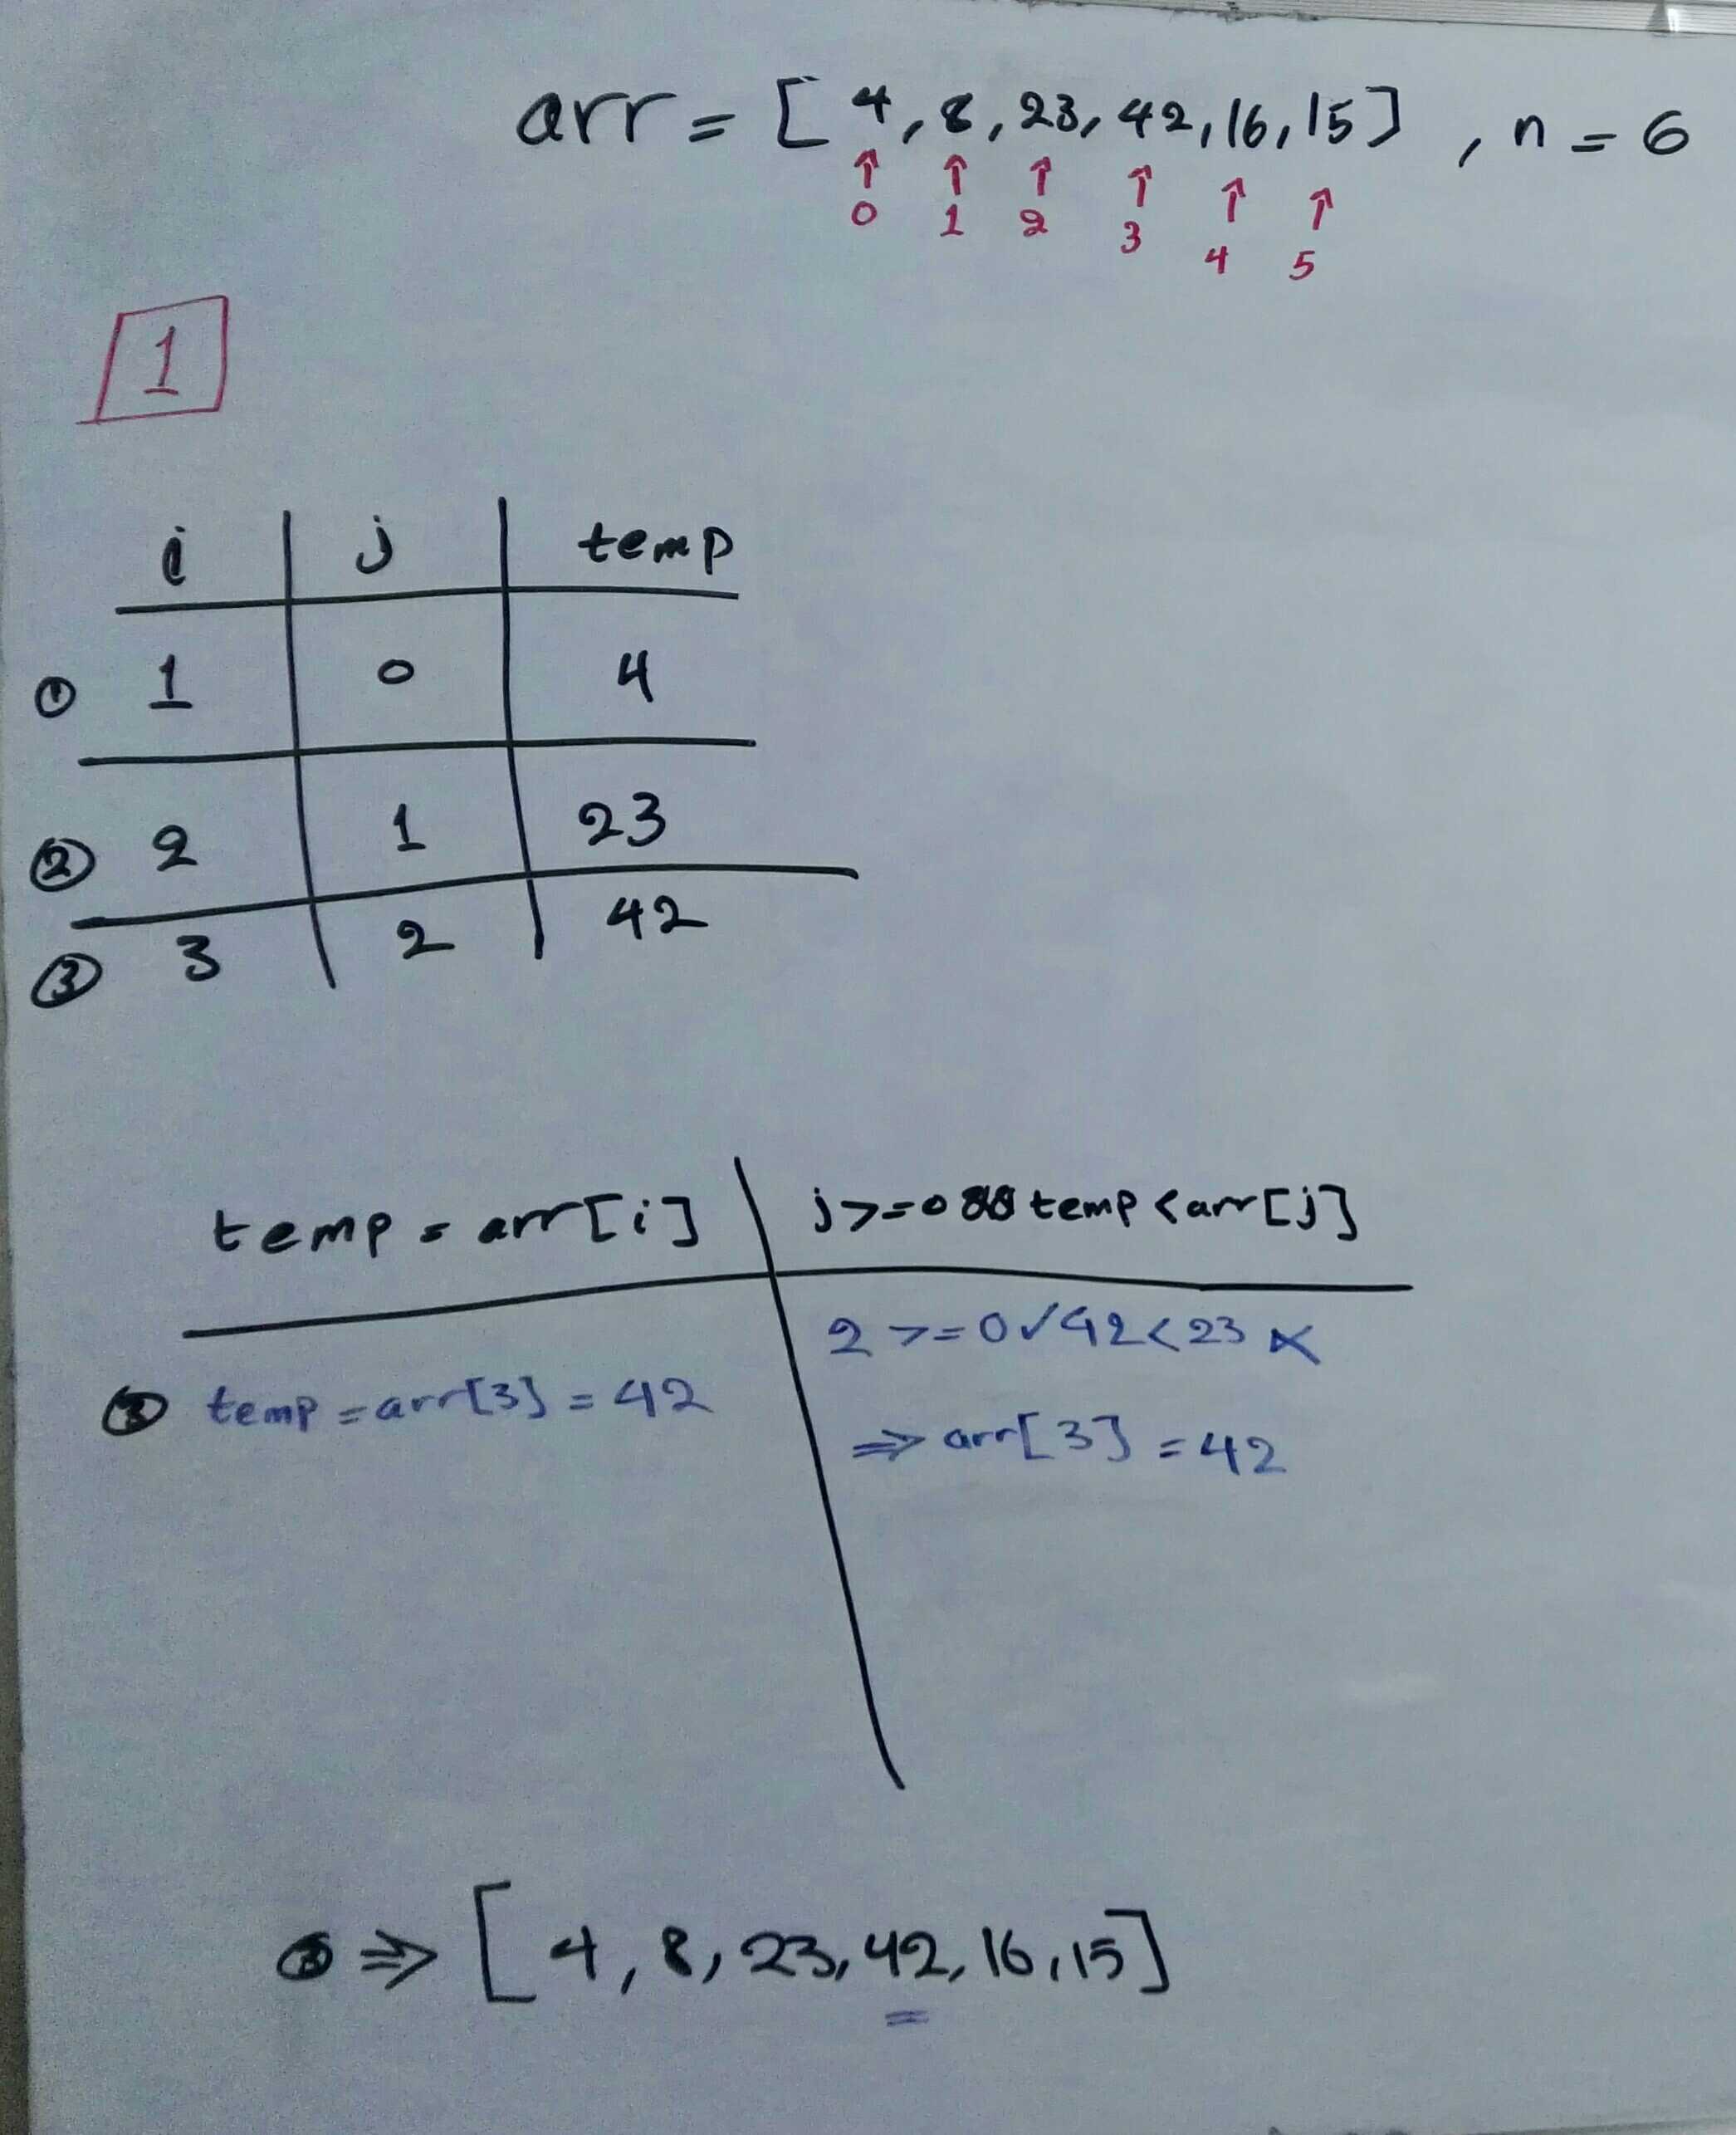 arr = [ 4, 8, 23, 42, 16, 15 ] , n = 6
↑ ↑ ↑ ↑ ↑ ↑
0 1 2 3 4 5
1
i | j | temp
① 1 | 0 | 4
② 2 | 1 | 23
③ 3 | 2 | 42
temp = arr[i] | j >= 0 && temp < arr[j]
2 >= 0 ✓ 42 < 23 ×
③ temp = arr[3] = 42
⇒ arr[3] = 42
③ ⇒ [ 4, 8, 23, 42, 16, 15 ]